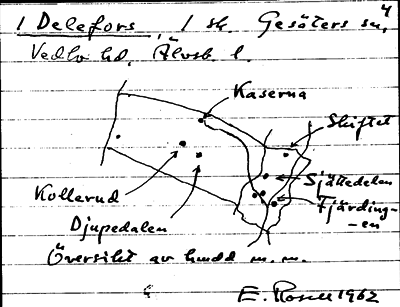 1 Delefors, 1 sk. Gesäters sn, 4
Vedbo hd, Älvsb. l.
Kaserna
Skiftet
Kollerud
Sjättedelen
Djupedalen
Fjärding-
-en
Översikt av hmdd m.m.
E. Rosell 1962